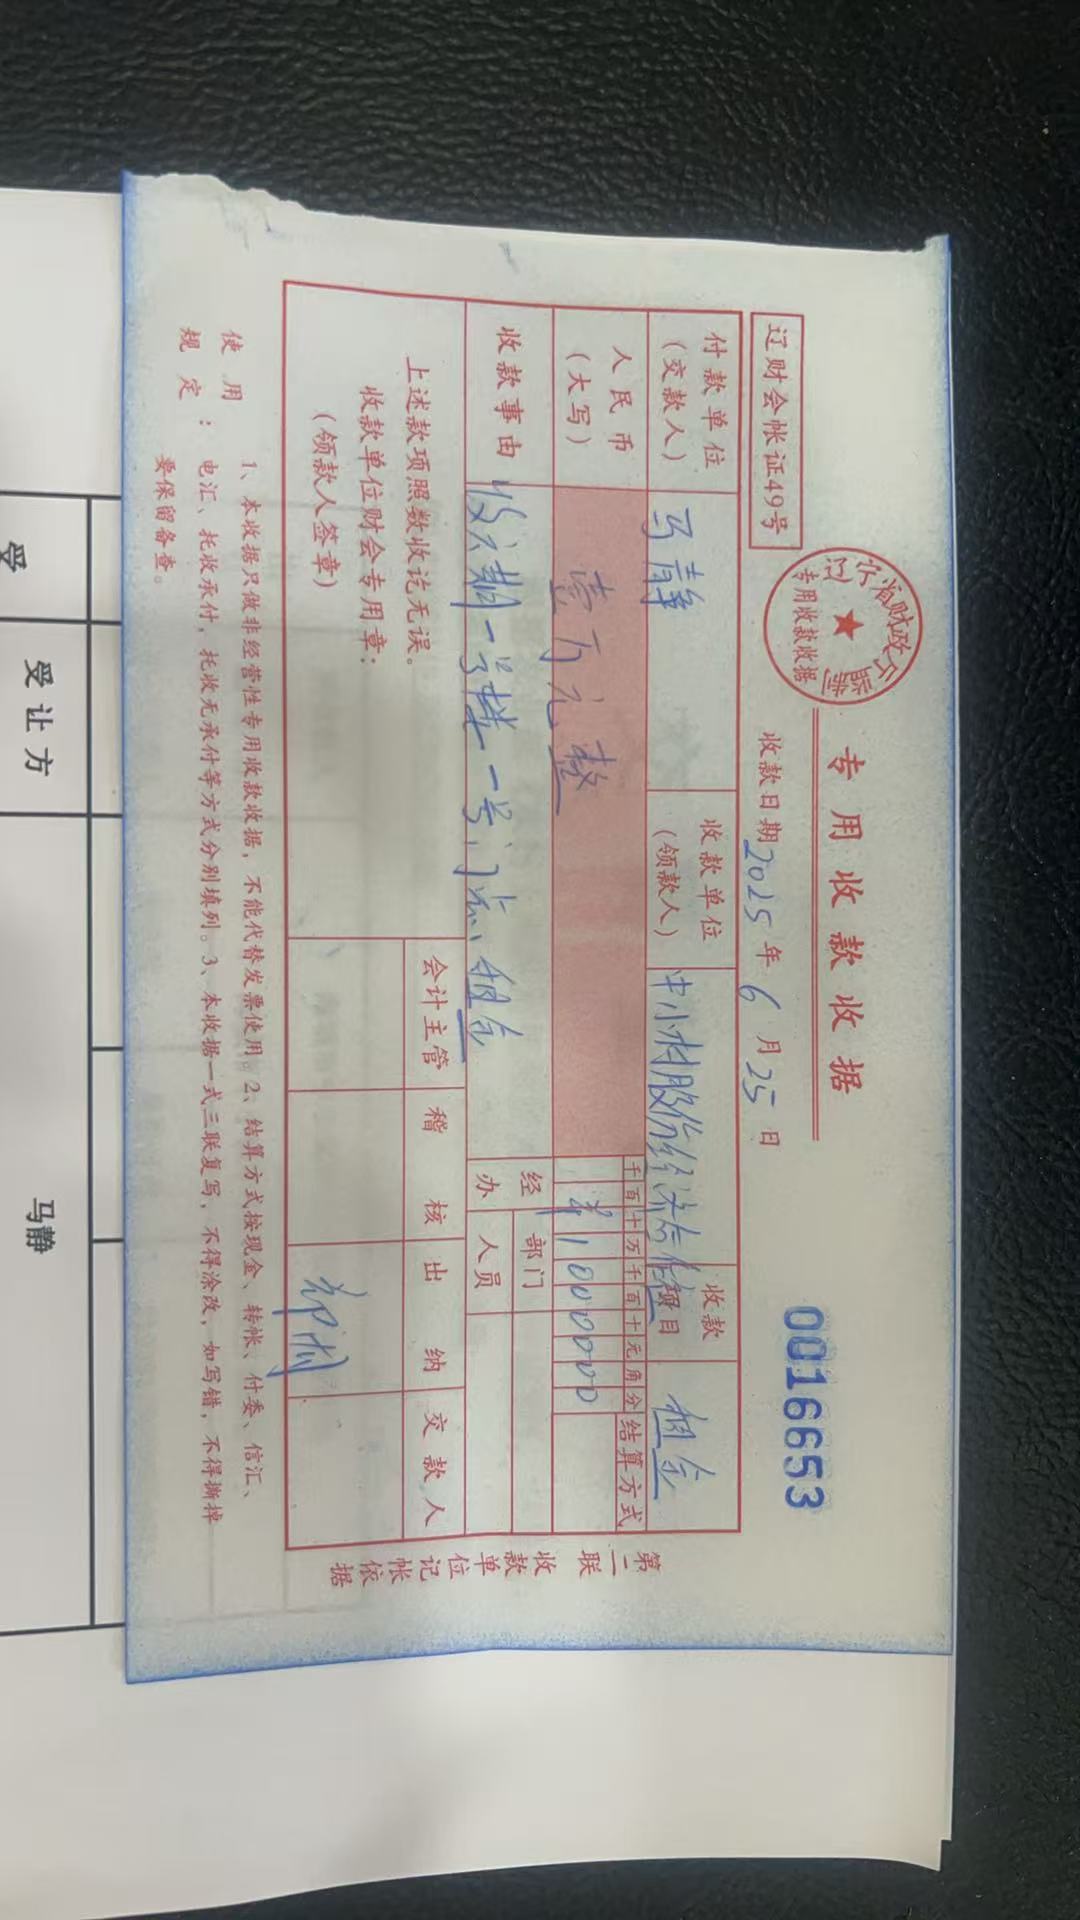 辽财会帐证49号
辽宁省财政厅监制
专用收款收据
专用收款收据
收款日期2025年6月25日
0016653
付款单位
(交款人)
马静
收款单位
(领款人)
中小村股份经济合作社
收款
项目
租金
人民币
(大写)
壹万元整
千百十万千百十元角分
¥1000000
结算方式
收款事由
收六期一号楼一号门点、租金
经办
部门
人员
上述款项照数收讫无误。
收款单位财会专用章:
(领款人签章)
会计主管
稽核
出纳
交款人
第二联 收款单位记帐依据
使用规定:
1、本收据只做非经营性专用收款收据,不能代替发票使用。2、结算方式按现金、转帐、付委、信汇、
电汇、托收承付,托收无承付等方式分别填列。3、本收据一式三联复写,不得涂改,如写错,不得撕掉
要保留备查。
受让方
马静
受